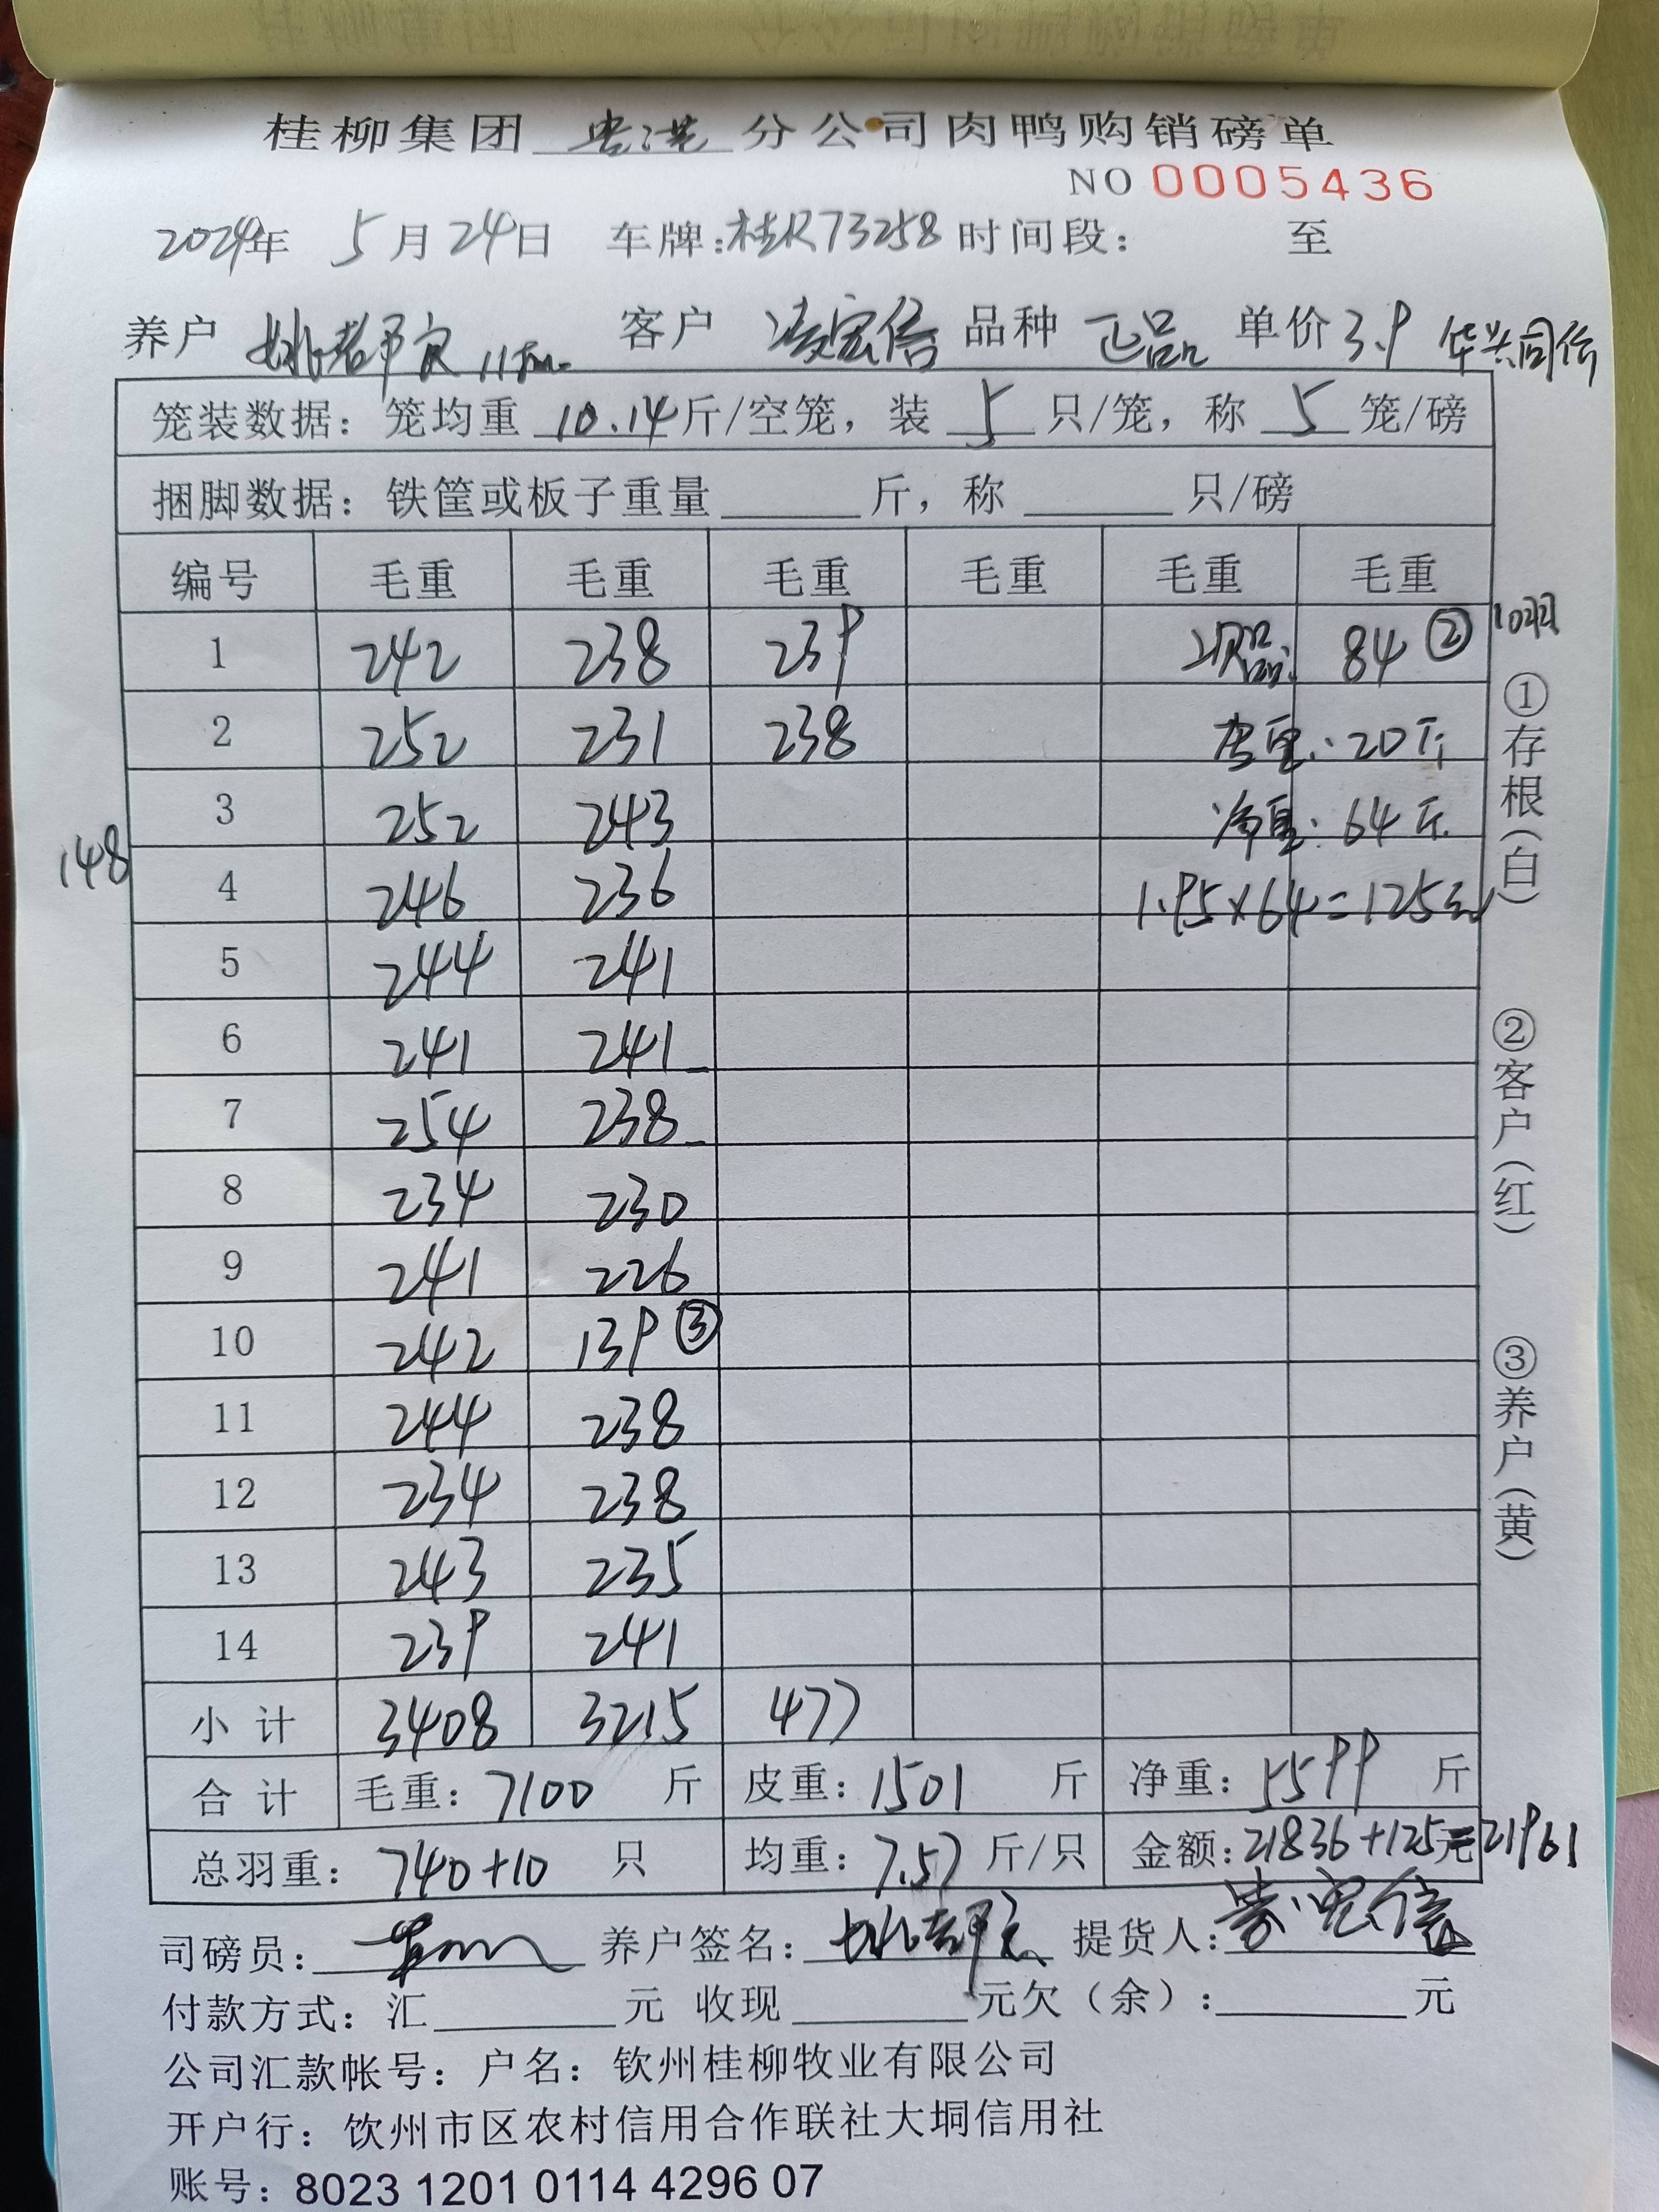 桂柳集团 贵港 分公司肉鸭购销磅单
NO 0005436
2024年 5月24日 车牌:桂R73258 时间段: 至
养户 客户 凌宏信 品种 正品 单价 3.9 华兴同价
笼装数据: 笼均重 10.14 斤/空笼, 装 5 只/笼, 称 5 笼/磅
捆脚数据: 铁筐或板子重量 斤, 称 只/磅
编号 毛重 毛重 毛重 毛重 毛重 毛重
1 242 238 239 次品: 84 ② 10羽
2 252 231 238 皮重: 20斤
3 252 243 净重: 64斤
148
4 246 236 1.95×64=125元
5 244 241
6 241 241
7 254 238
8 234 230
9 241 226
10 242 139 ③
11 244 238
12 234 238
13 243 235
14 239 241
小计 3408 3215 477
合计 毛重: 7100 斤 皮重: 1501 斤 净重: 5599 斤
总羽重: 740+10 只 均重: 7.57 斤/只 金额: 21836+125元=21961
司磅员: 养户签名: 提货人:
付款方式: 汇 元 收现 元欠(余): 元
公司汇款帐号: 户名: 钦州桂柳牧业有限公司
开户行: 钦州市区农村信用合作联社大垌信用社
账号: 8023 1201 0114 4296 07
①存根(白)
②客户(红)
③养户(黄)